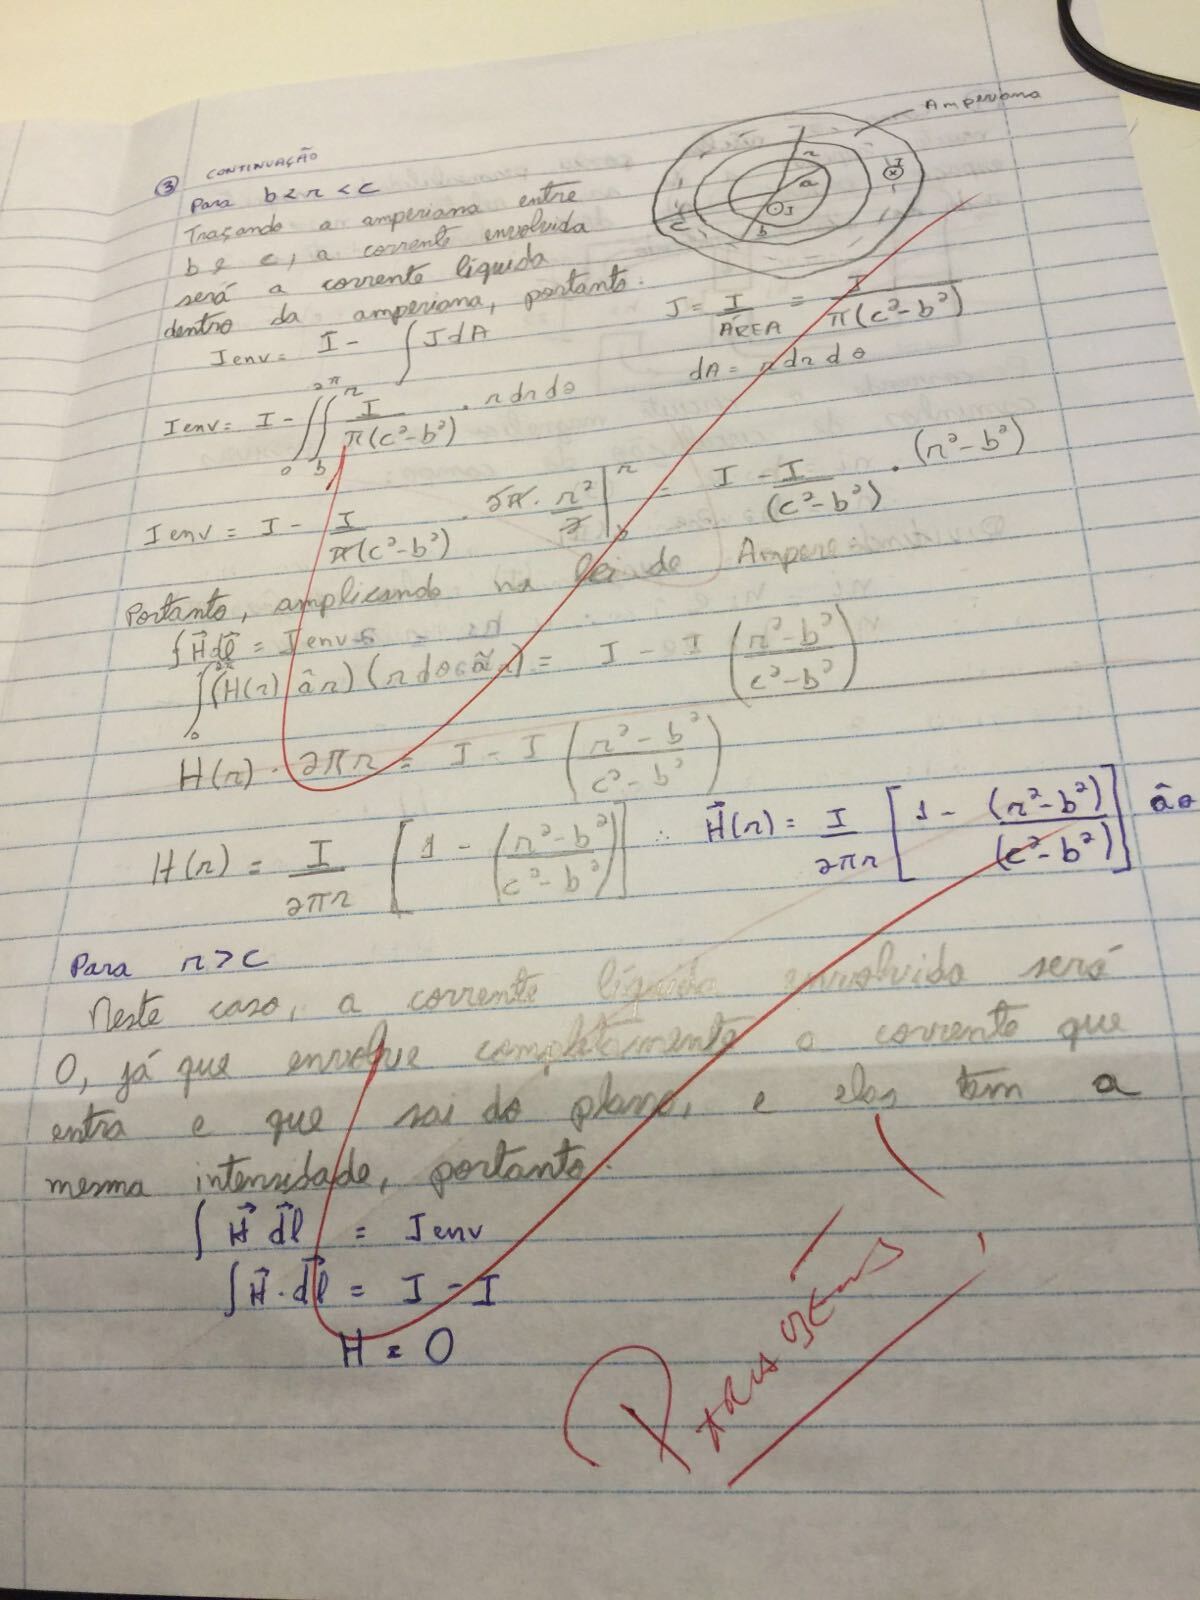 ③ CONTINUAÇÃO
Para b < r < c
Traçando a amperiana entre
b e c, a corrente envolvida
será a corrente líquida
dentro da amperiana, portanto:
Amperiana
r
a
I
b
c
I
Ienv = I - ∫ J dA
J = I/ÁREA = I/π(c²-b²)
dA = r dr dθ
Ienv = I - ∫₀^2π ∫_b^r I/π(c²-b²) . r dr dθ
Ienv = I - I/π(c²-b²) . 2π . r²/2 |_b^r = I - I/(c²-b²) . (r²-b²)
Portanto, amplicando na lei de Ampere:
∫ H⃗ dl⃗ = Ienv
∫₀^2π (H(r) âr)(r dθ âr) = I - I (r²-b²/c²-b²)
H(r) . 2πr = I - I (r²-b²/c²-b²)
H(r) = I/2πr [1 - (r²-b²/c²-b²)] ∴ H⃗(r) = I/2πr [1 - (r²-b²)/(c²-b²)] âθ
Para r > c
Neste caso, a corrente líquida envolvida será
0, já que envolve completamente a corrente que
entra e que sai do plano, e elas tem a
mesma intensidade, portanto:
∫ H⃗ dl⃗ = Ienv
∫ H⃗ . dl⃗ = I - I
H = 0
PARABÉNS!